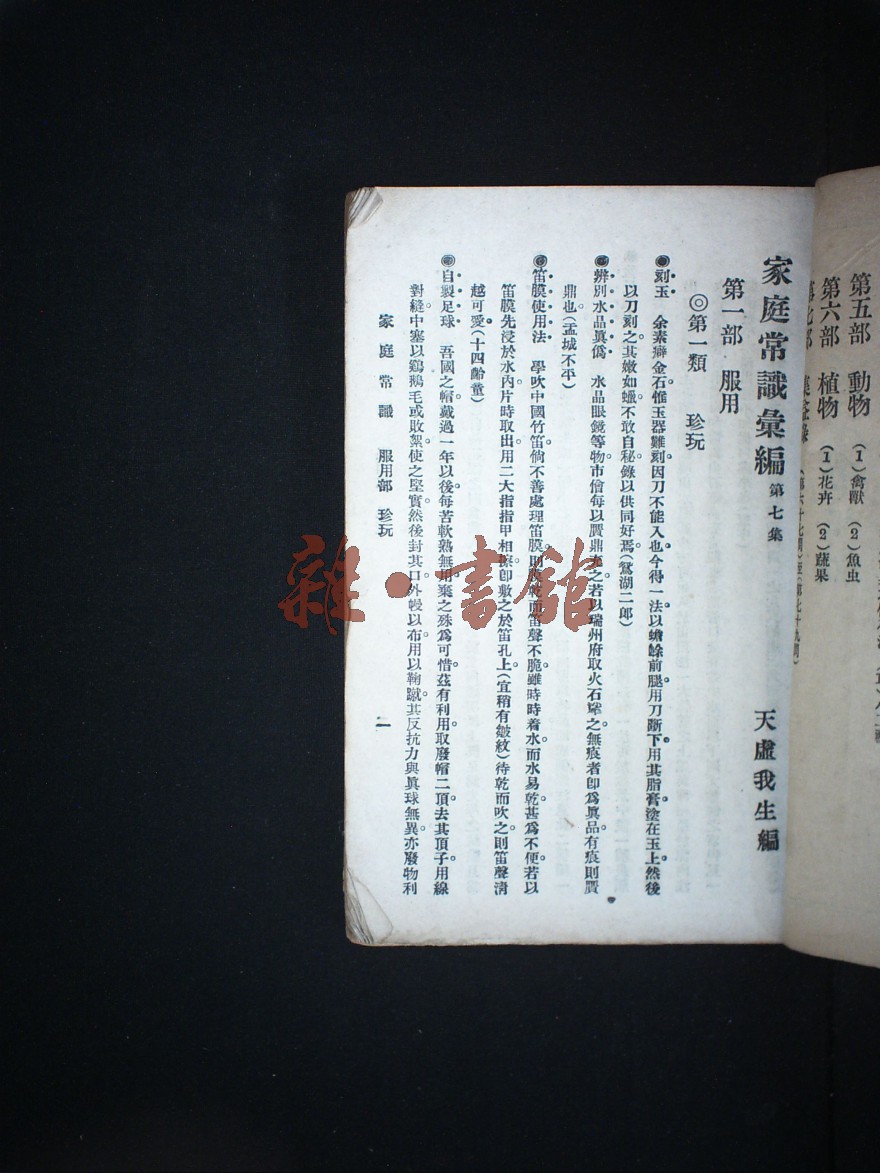 第五部 動物 （1）禽獸 （2）魚虫
第六部 植物 （1）花卉 （2）蔬果
家庭常識彙編 第七集 天虛我生編
第一部 服用
◎第一類 珍玩
◉刻玉 余素癖金石惟玉器難刻因刀不能入也今得一法以蟾蜍前腿用刀斷下用其脂膏塗在玉上然後
以刀刻之其嫩如蠟不敢自秘錄以供同好焉（鴛湖二郎）
◉辨別水晶眞僞 水晶眼鏡等物市儈每以贋鼎充之若以瑞州府取火石擊之無痕者卽爲眞品有痕則贋
鼎也（孟城不平）
◉笛膜使用法 學吹中國竹笛倘不善處理笛膜則膜乾而笛聲不脆雖時時着水而水易乾甚爲不便若以
笛膜先浸於水內片時取出用二大指指甲相擦卽敷之於笛孔上（宜稍有皺紋）待乾而吹之則笛聲淸
越可愛（十四齡童）
◉自製足球 吾國之帽戴過一年以後每苦軟熟無用棄之殊爲可惜茲有利用取廢帽二頂去其頂子用線
對縫中塞以鷄鵝毛或敗絮使之堅實然後封其口外幔以布用以鞠蹴其反抗力與眞球無異亦廢物利
家庭常識 服用部 珍玩 一
雜·書館